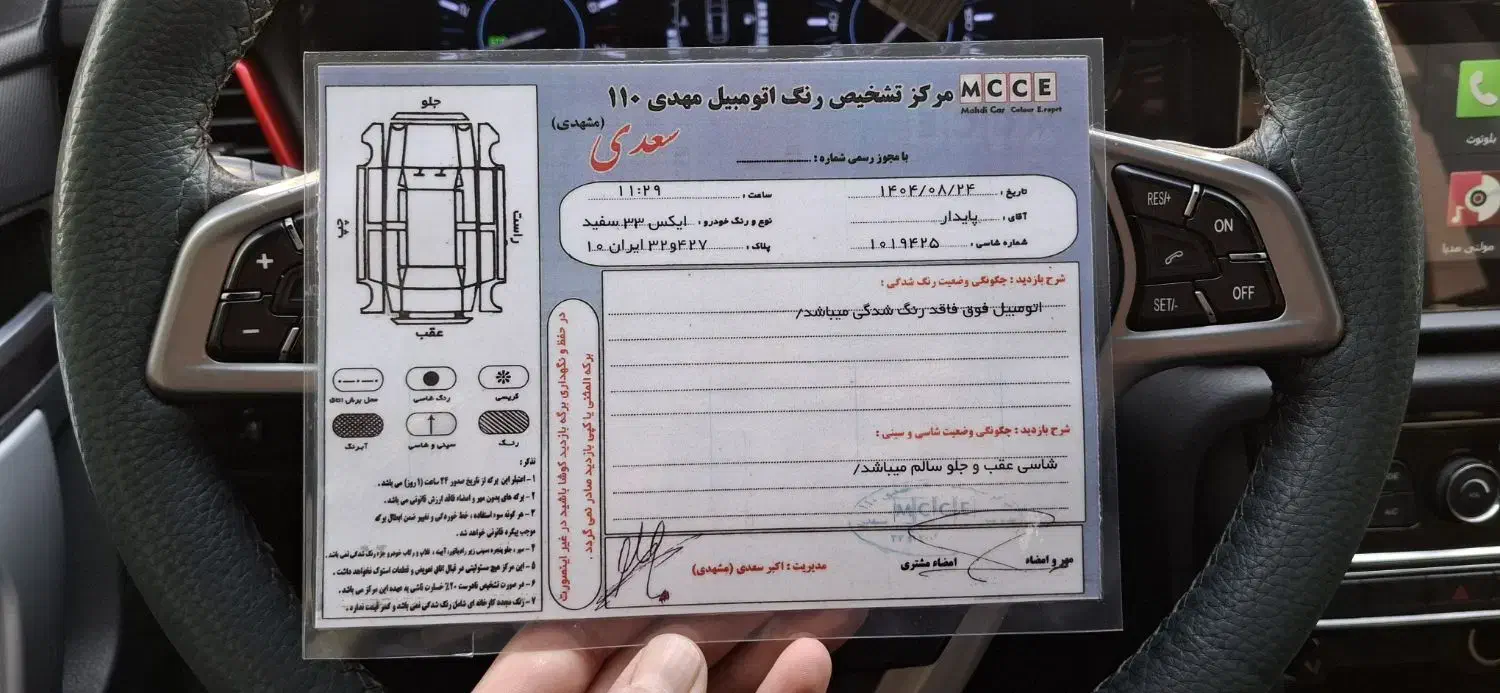 MCCE
Mahdi Car Colour E.xprt
مرکز تشخیص رنگ اتومبیل مهدی ۱۱۰
سعدی (مشهدی)
با مجوز رسمی شماره :
تاریخ : ۱۴۰۴/۰۸/۲۴
ساعت : ۱۱:۲۹
آقای : پایدار
نوع و رنگ خودرو : ایکس ۳۳ سفید
شماره شاسی : ۱۰۱۹۴۲۵
پلاک : ۴۲۷و۳۲ ایران ۱۰
شرح بازدید : چگونگی وضعیت رنگ شدگی :
اتومبیل فوق فاقد رنگ شدگی میباشد/
شرح بازدید : چگونگی وضعیت شاسی و سینی :
شاسی عقب و جلو سالم میباشد/
MCCE
مهر و امضاء
امضاء مشتری
مدیریت : اکبر سعدی (مشهدی)
در حفظ و نگهداری برگه بازدید کوشا باشید در غیر اینصورت
برگه المثنی یا کپی بازدید صادر نمی گردد .
جلو
راست
چپ
عقب
گریسی
رنگ شاسی
محل برش اتاق
رنگ
سینی و شاسی
آبرنگ
تذکر :
۱- اعتبار این برگه از تاریخ صدور ۲۴ ساعت (۱ روز) می باشد .
۲- برگه های بدون مهر و امضاء فاقد ارزش قانونی می باشد .
۳- هر گونه سوء استفاده ، خط خوردگی و تغییر ضمن ابطال برگه
موجب پیگرد قانونی خواهد شد .
۴- سپر ، جلوپنجره سینی زیر رادیاتور، آیینه ، قالپاق و رکاب خودرو جزء رنگ شدگی نمی باشد .
۵- این مرکز هیچ مسئولیتی در قبال اتاق تعویض و قطعات استوک نخواهد داشت .
۶- در صورت تشخیص نادرست ۲۰٪ خسارت ناشی به عهده این مرکز می باشد .
۷- رنگ مجدد کارخانه ای شامل رنگ شدگی نمی باشد و کسر قیمت ندارد .
RES/+
ON
SET/-
OFF
+
-
بلوتوث
مولتی مدیا